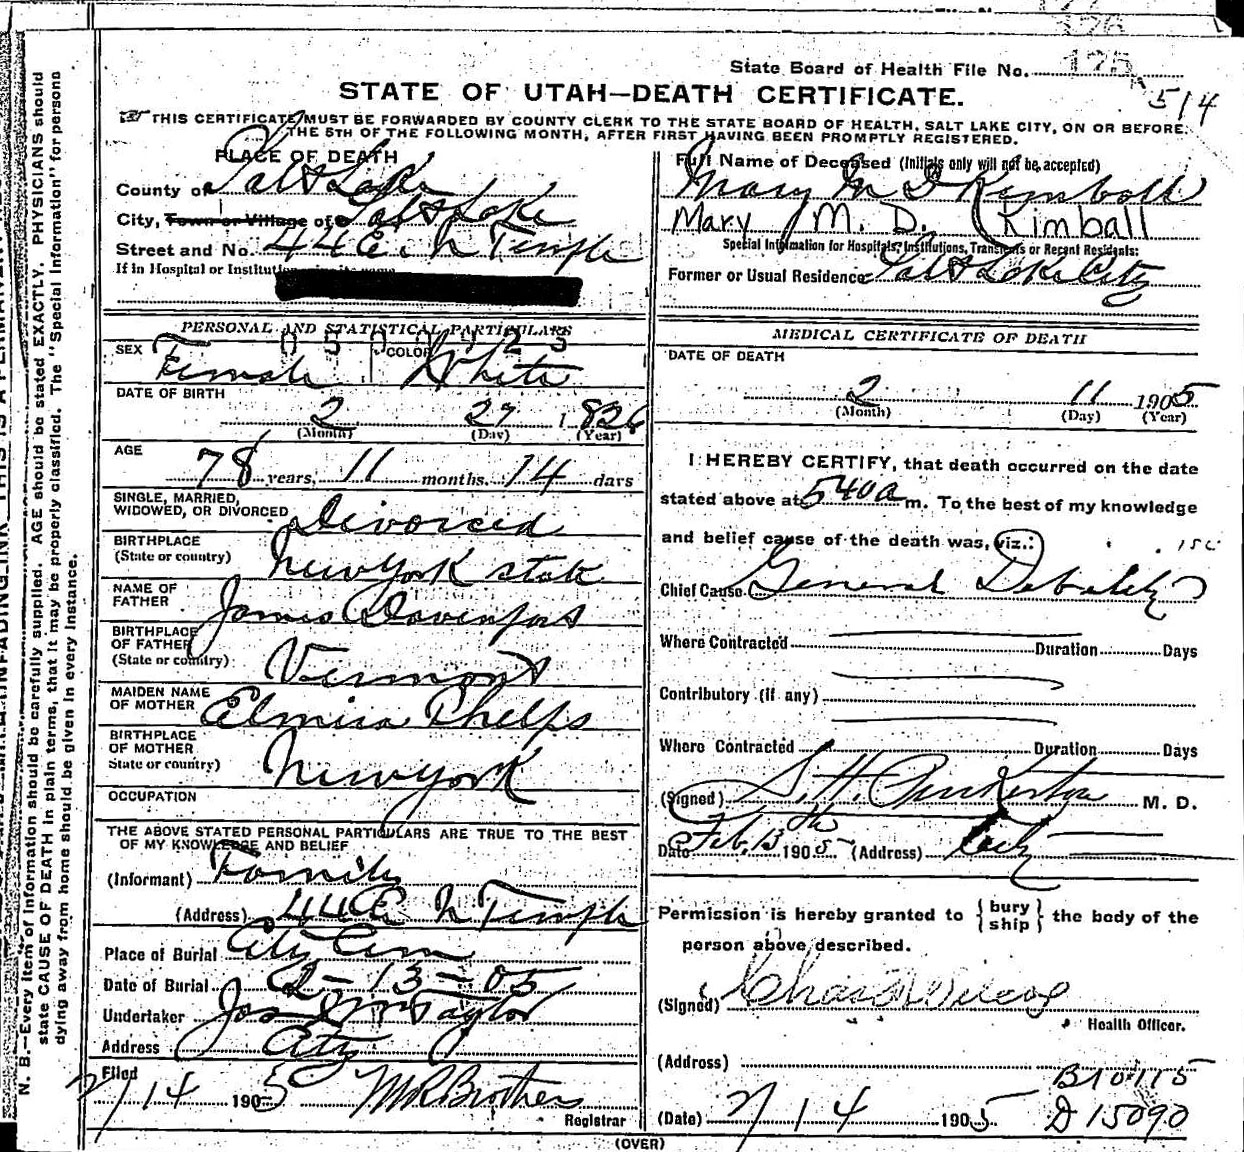 State Board of Health File No. 175
514
STATE OF UTAH—DEATH CERTIFICATE.
THIS CERTIFICATE MUST BE FORWARDED BY COUNTY CLERK TO THE STATE BOARD OF HEALTH, SALT LAKE CITY, ON OR BEFORE
THE 5TH OF THE FOLLOWING MONTH, AFTER FIRST HAVING BEEN PROMPTLY REGISTERED.
PLACE OF DEATH
County of Salt Lake
City, Town or Village of Salt Lake
Street and No. 44 E. N Temple
If in Hospital or Institution
Full Name of Deceased (Initials only will not be accepted)
Mary M D Kimball
Mary M. D. Kimball
Special Information for Hospitals, Institutions, Transients or Recent Residents:
Former or Usual Residence Salt Lake City
PERSONAL AND STATISTICAL PARTICULARS
SEX Female COLOR White
DATE OF BIRTH
2 27 1826
(Month) (Day) (Year)
AGE
78 years, 11 months, 14 days
SINGLE, MARRIED,
WIDOWED, OR DIVORCED Divorced
BIRTHPLACE
(State or country) New York state
NAME OF
FATHER James Davenport
BIRTHPLACE
OF FATHER
(State or country) Vermont
MAIDEN NAME
OF MOTHER Elmira Phelps
BIRTHPLACE
OF MOTHER
State or country) New York
OCCUPATION
THE ABOVE STATED PERSONAL PARTICULARS ARE TRUE TO THE BEST
OF MY KNOWLEDGE AND BELIEF
(Informant) Family
(Address) 44 E N Temple
Place of Burial City Cem
Date of Burial 2-13-05
Undertaker Jos Wm Taylor
Address City
Filed
2/14 1905 M R Brothers
Registrar
MEDICAL CERTIFICATE OF DEATH
DATE OF DEATH
2 11 1905
(Month) (Day) (Year)
I HEREBY CERTIFY, that death occurred on the date
stated above at 5 40 a m. To the best of my knowledge
and belief cause of the death was, viz.:
Chief Cause General Debility
Where Contracted Duration Days
Contributory (if any)
Where Contracted Duration Days
(Signed) S. H. Pinkerton M. D.
Date Feb. 13th 1905 (Address) City
Permission is hereby granted to {bury ship} the body of the
person above described.
(Signed) Chas Wilcox
Health Officer.
(Address)
B10115
(Date) 2/14 1905 D 15090
(OVER)
N. B.—Every item of information should be carefully supplied. AGE should be stated EXACTLY. PHYSICIANS should
state CAUSE OF DEATH in plain terms, that it may be properly classified. The "Special Information" for persons
dying away from home should be given in every instance.